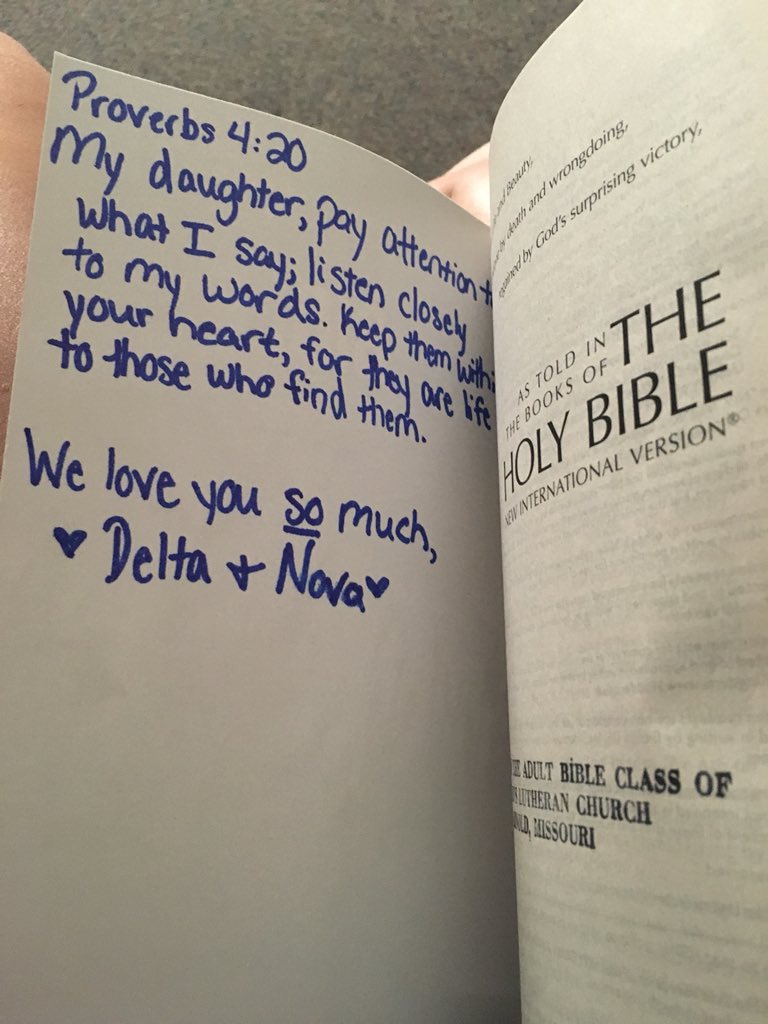 Proverbs 4:20
My daughter, pay attention
what I say; listen closely
to my words. Keep them
your heart, for they are life
to those who find them.
We love you so much,
♥ Delta + Nova ♥
and Beauty,
by death and wrongdoing,
by God's surprising victory,
AS TOLD IN
THE BOOKS OF THE
HOLY BIBLE
NEW INTERNATIONAL VERSION®
ADULT BIBLE CLASS OF
LUTHERAN CHURCH
MISSOURI